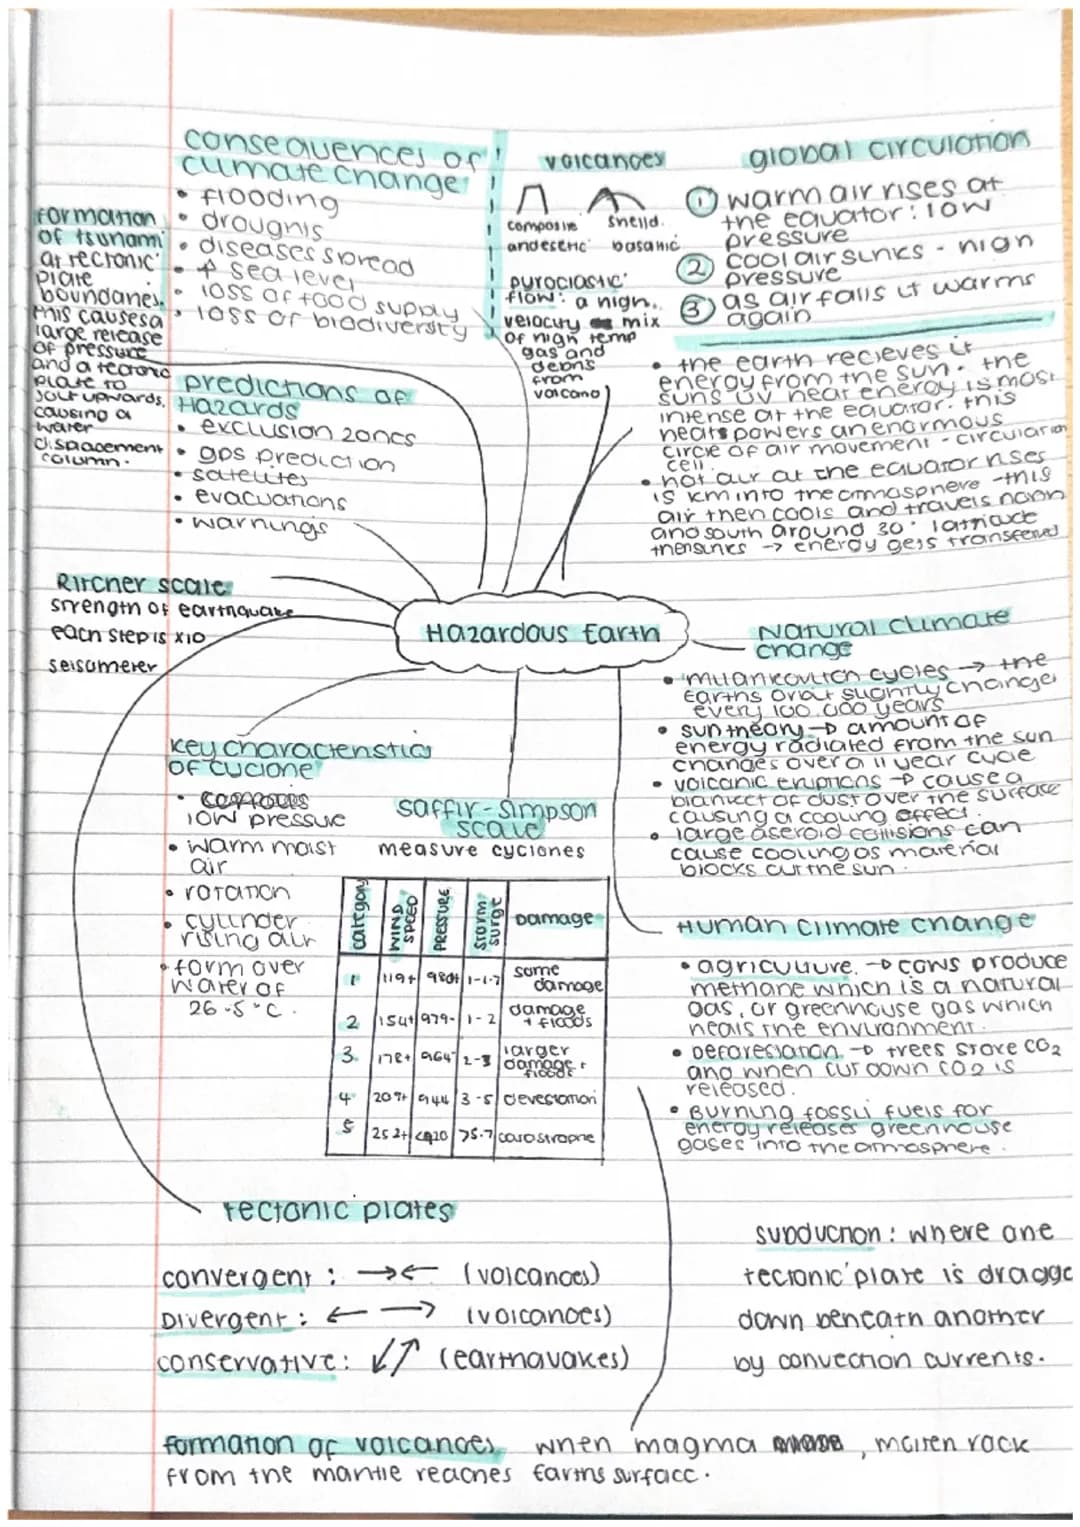 consequences of
climate change
• flooding
• droughts
• diseases spread
• ↑ sea level
• loss of food supply
• loss of biodiversity
formation
of tsunami
at tectonic
plate
boundaries.
this causes a
large release
of pressure
and a tectonic
plate to
jolt upwards,
causing a
water
displacement
column.
predictions of
Hazards
• exclusion zones
• gps prediction
• satelites
• evacuations
• warnings
volcanoes
composite
andesetic
sheild
basaltic
pyroclastic
flow: a high
velocity mix
of high temp
gas and
debris
from
volcano
global circulation
① warm air rises at
the equator: low
pressure
② cool air sinks - high
pressure
③ as air falls it warms
again
• the earth recieves it
energy from the sun. the
suns UV heat energy is most
intense at the equator. this
heat powers an enormous
circle of air movement - circulation
cell.
• hot air at the equator rises
15 km into the atmosphere - this
air then cools and travels north
and south around 30° latitude
then sinks → energy gets transfered
Ritcher scale
strength of earthquake
each step is x10
seisometer
Hazardous Earth
Natural climate
change
• milankovitch cycles → the
Earths orbit slightly changes
every 100,000 years
• sun theory → amount of
energy radiated from the sun
changes over a 11 year cycle
• volcanic eruptions → cause a
blanket of dust over the surface
causing a cooling effect.
• large aseroid collisions can
cause cooling as material
blocks out the sun.
key characteristics
of cyclone
• low pressure
• warm moist
air
• rotation
• cylinder
rising air
• form over
water of
26.5°C.
saffir-simpson
scale
measure cyclones
category WIND SPEED PRESSURE storm surge Damage
1 119+ 980+ 1-1.7 some damage
2 154+ 979- 1-2 damage + floods
3 178+ 964- 2-3 larger damage + floods
4 209+ 944 3-5 devestation
5 252+ <920 >5.7 catastrophe
Human climate change
• agriculture → cows produce
methane which is a natural
gas, or greenhouse gas which
heats the environment.
• Deforestation → trees store CO2
and when cut down CO2 is
released.
• Burning fossil fuels for
energy releases greenhouse
gases into the atmosphere.
tectonic plates
convergent: →← (volcanoes)
Divergent: ← → (volcanoes)
conservative: ↙↗ (earthquakes)
subduction: where one
tectonic plate is dragge
down beneath another
by convection currents.
formation of volcanoes when magma, molten rock
from the mantle reaches Earths surface.